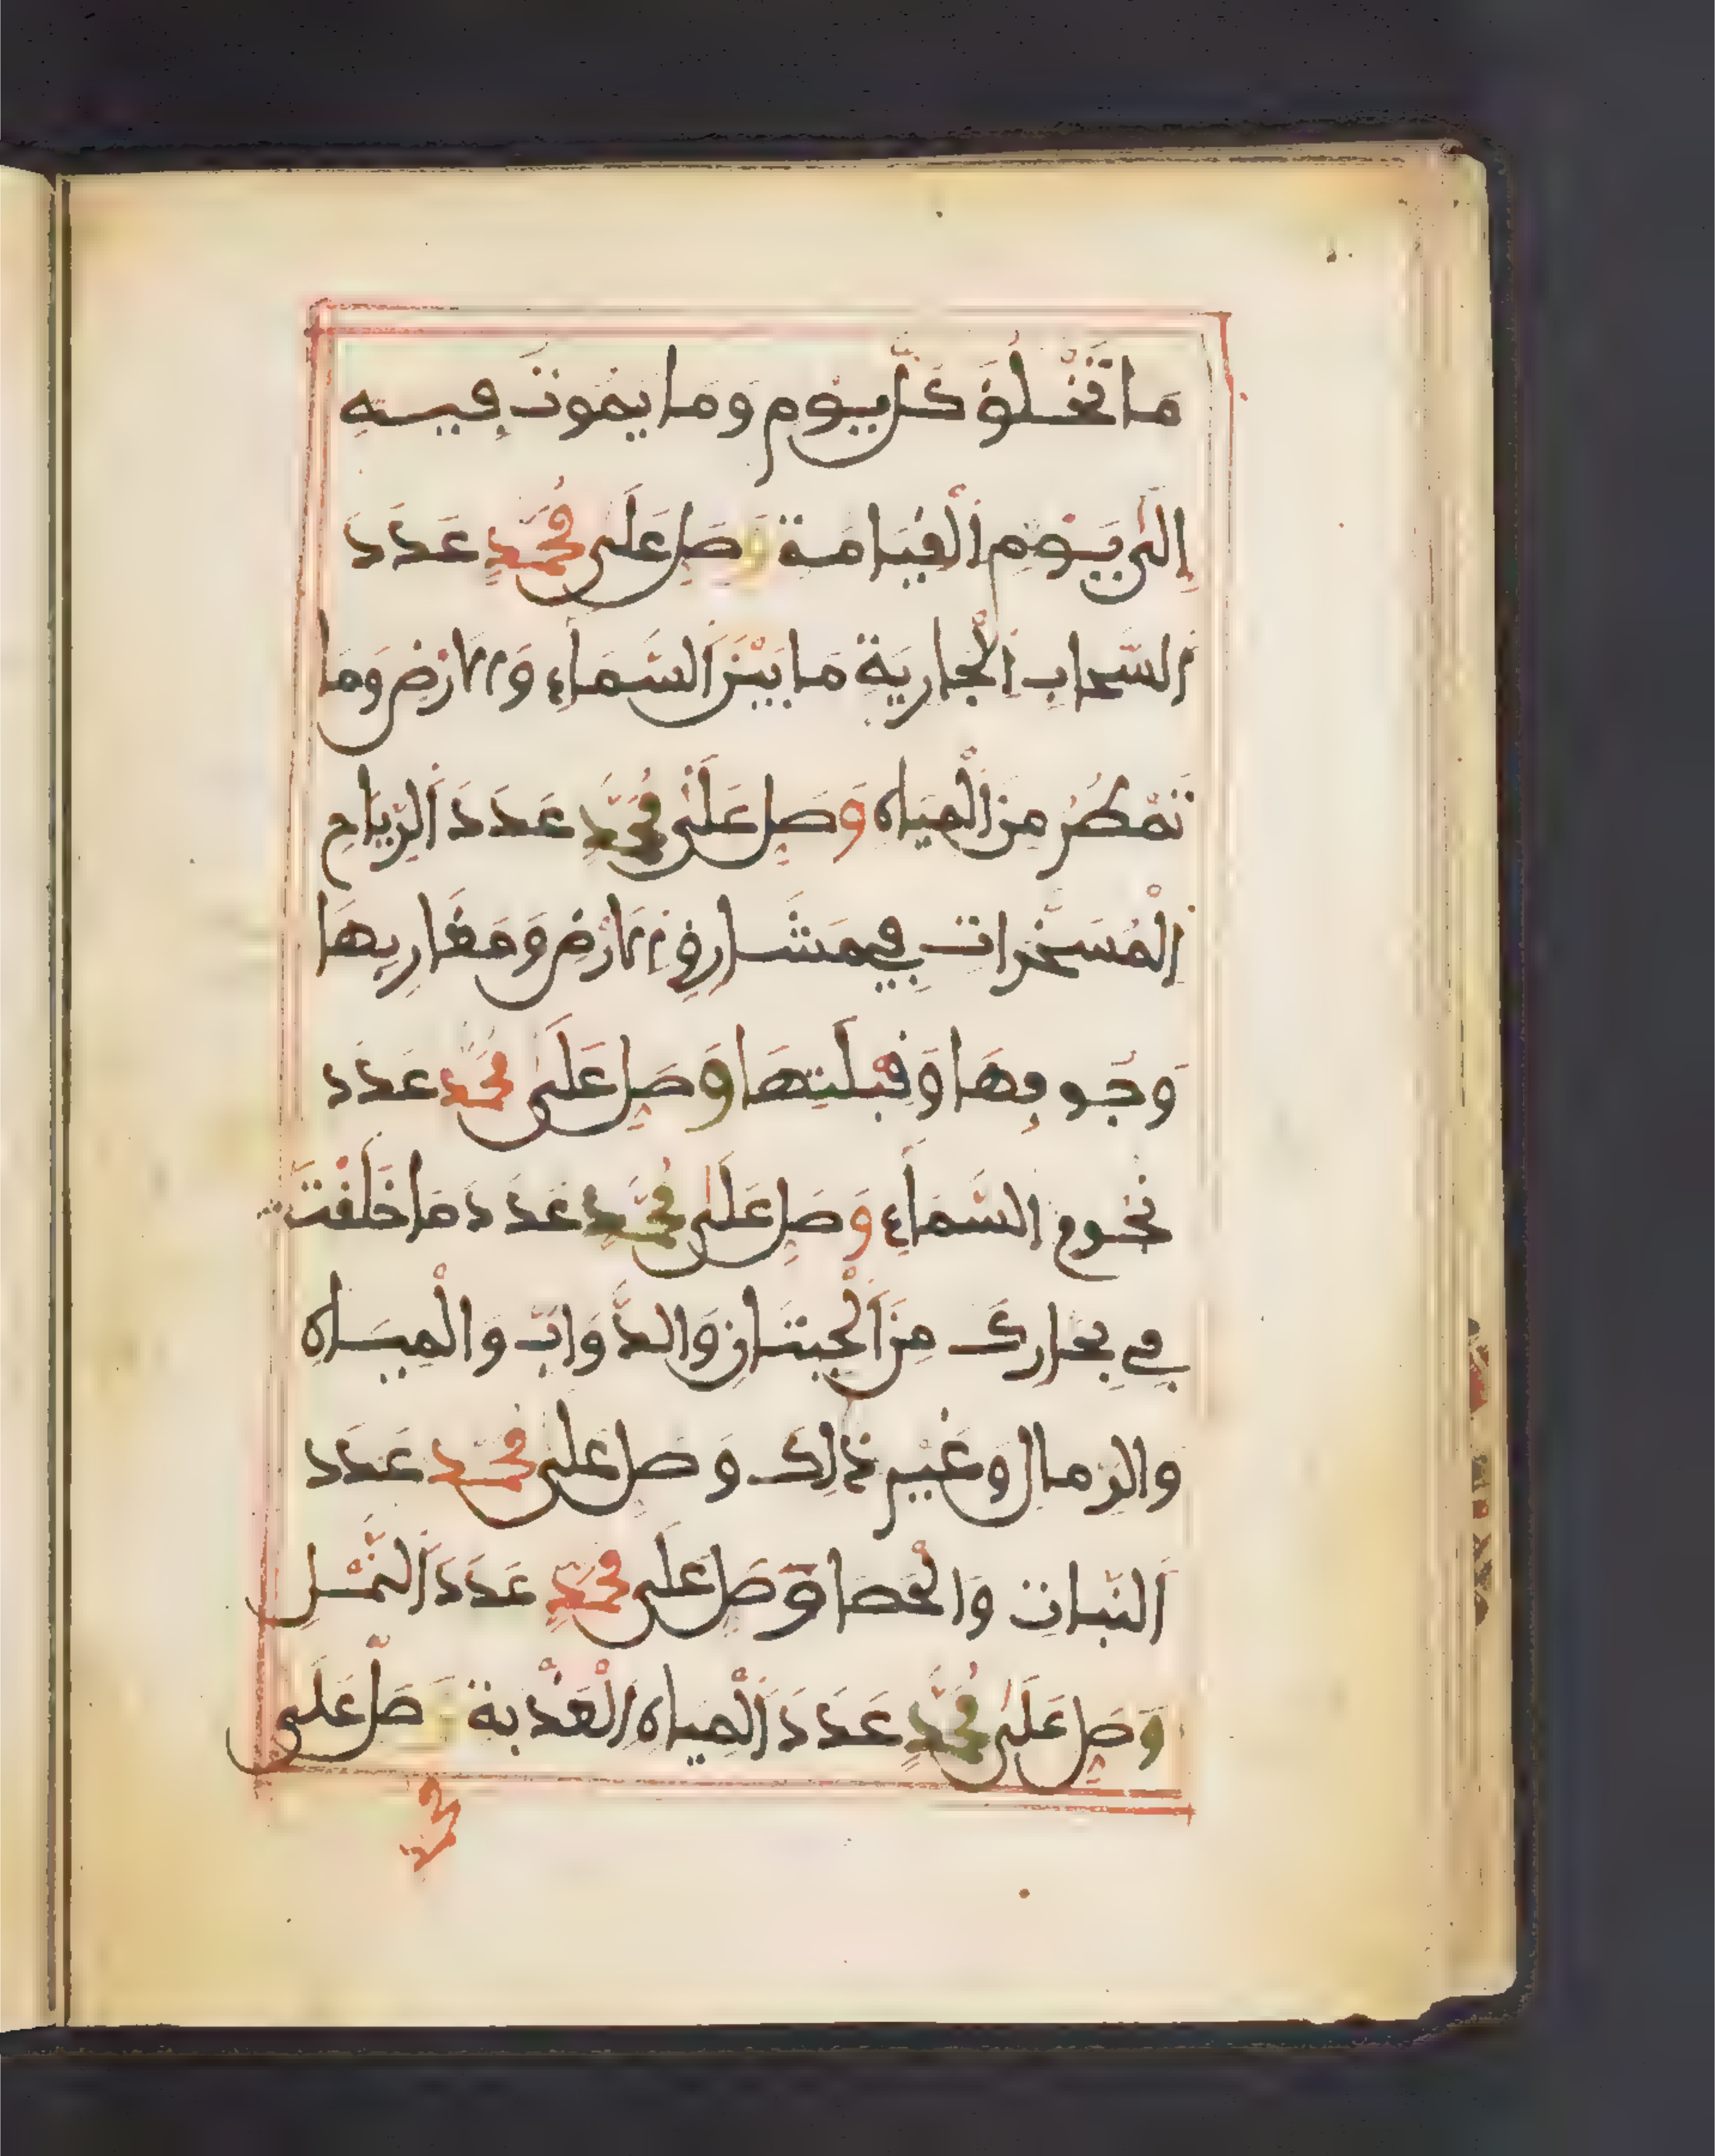 مَا تَخْلُقُ كُلَّ يَوْمٍ وَمَا يَمُوتُ فِيهِ
إِلَى يَوْمِ الْقِيَامَةِ وَصَلِّ عَلَى مُحَمَّدٍ عَدَدَ
السَّحَابِ الْجَارِيَةِ مَا بَيْنَ السَّمَاءِ وَالْأَرْضِ وَمَا
تَمْطُرُ مِنَ الْمِيَاهِ وَصَلِّ عَلَى مُحَمَّدٍ عَدَدَ الرِّيَاحِ
الْمُسَخَّرَاتِ فِي مَشَارِقِ الْأَرْضِ وَمَغَارِبِهَا
وَجَوفِهَا وَقِبْلَتِهَا وَصَلِّ عَلَى مُحَمَّدٍ عَدَدَ
نُجُومِ السَّمَاءِ وَصَلِّ عَلَى مُحَمَّدٍ عَدَدَ مَا خَلَقْتَ
فِي بِحَارِكَ مِنَ الْحِيتَانِ وَالدَّوَابِّ وَالْمِيَاهِ
وَالرِّمَالِ وَغَيْرِ ذَلِكَ وَصَلِّ عَلَى مُحَمَّدٍ عَدَدَ
النَّبَاتِ وَالْحَصَا وَصَلِّ عَلَى مُحَمَّدٍ عَدَدَ النَّمْلِ
وَصَلِّ عَلَى مُحَمَّدٍ عَدَدَ الْمِيَاهِ الْعَذْبَةِ وَصَلِّ عَلَى
مُحَمَّد